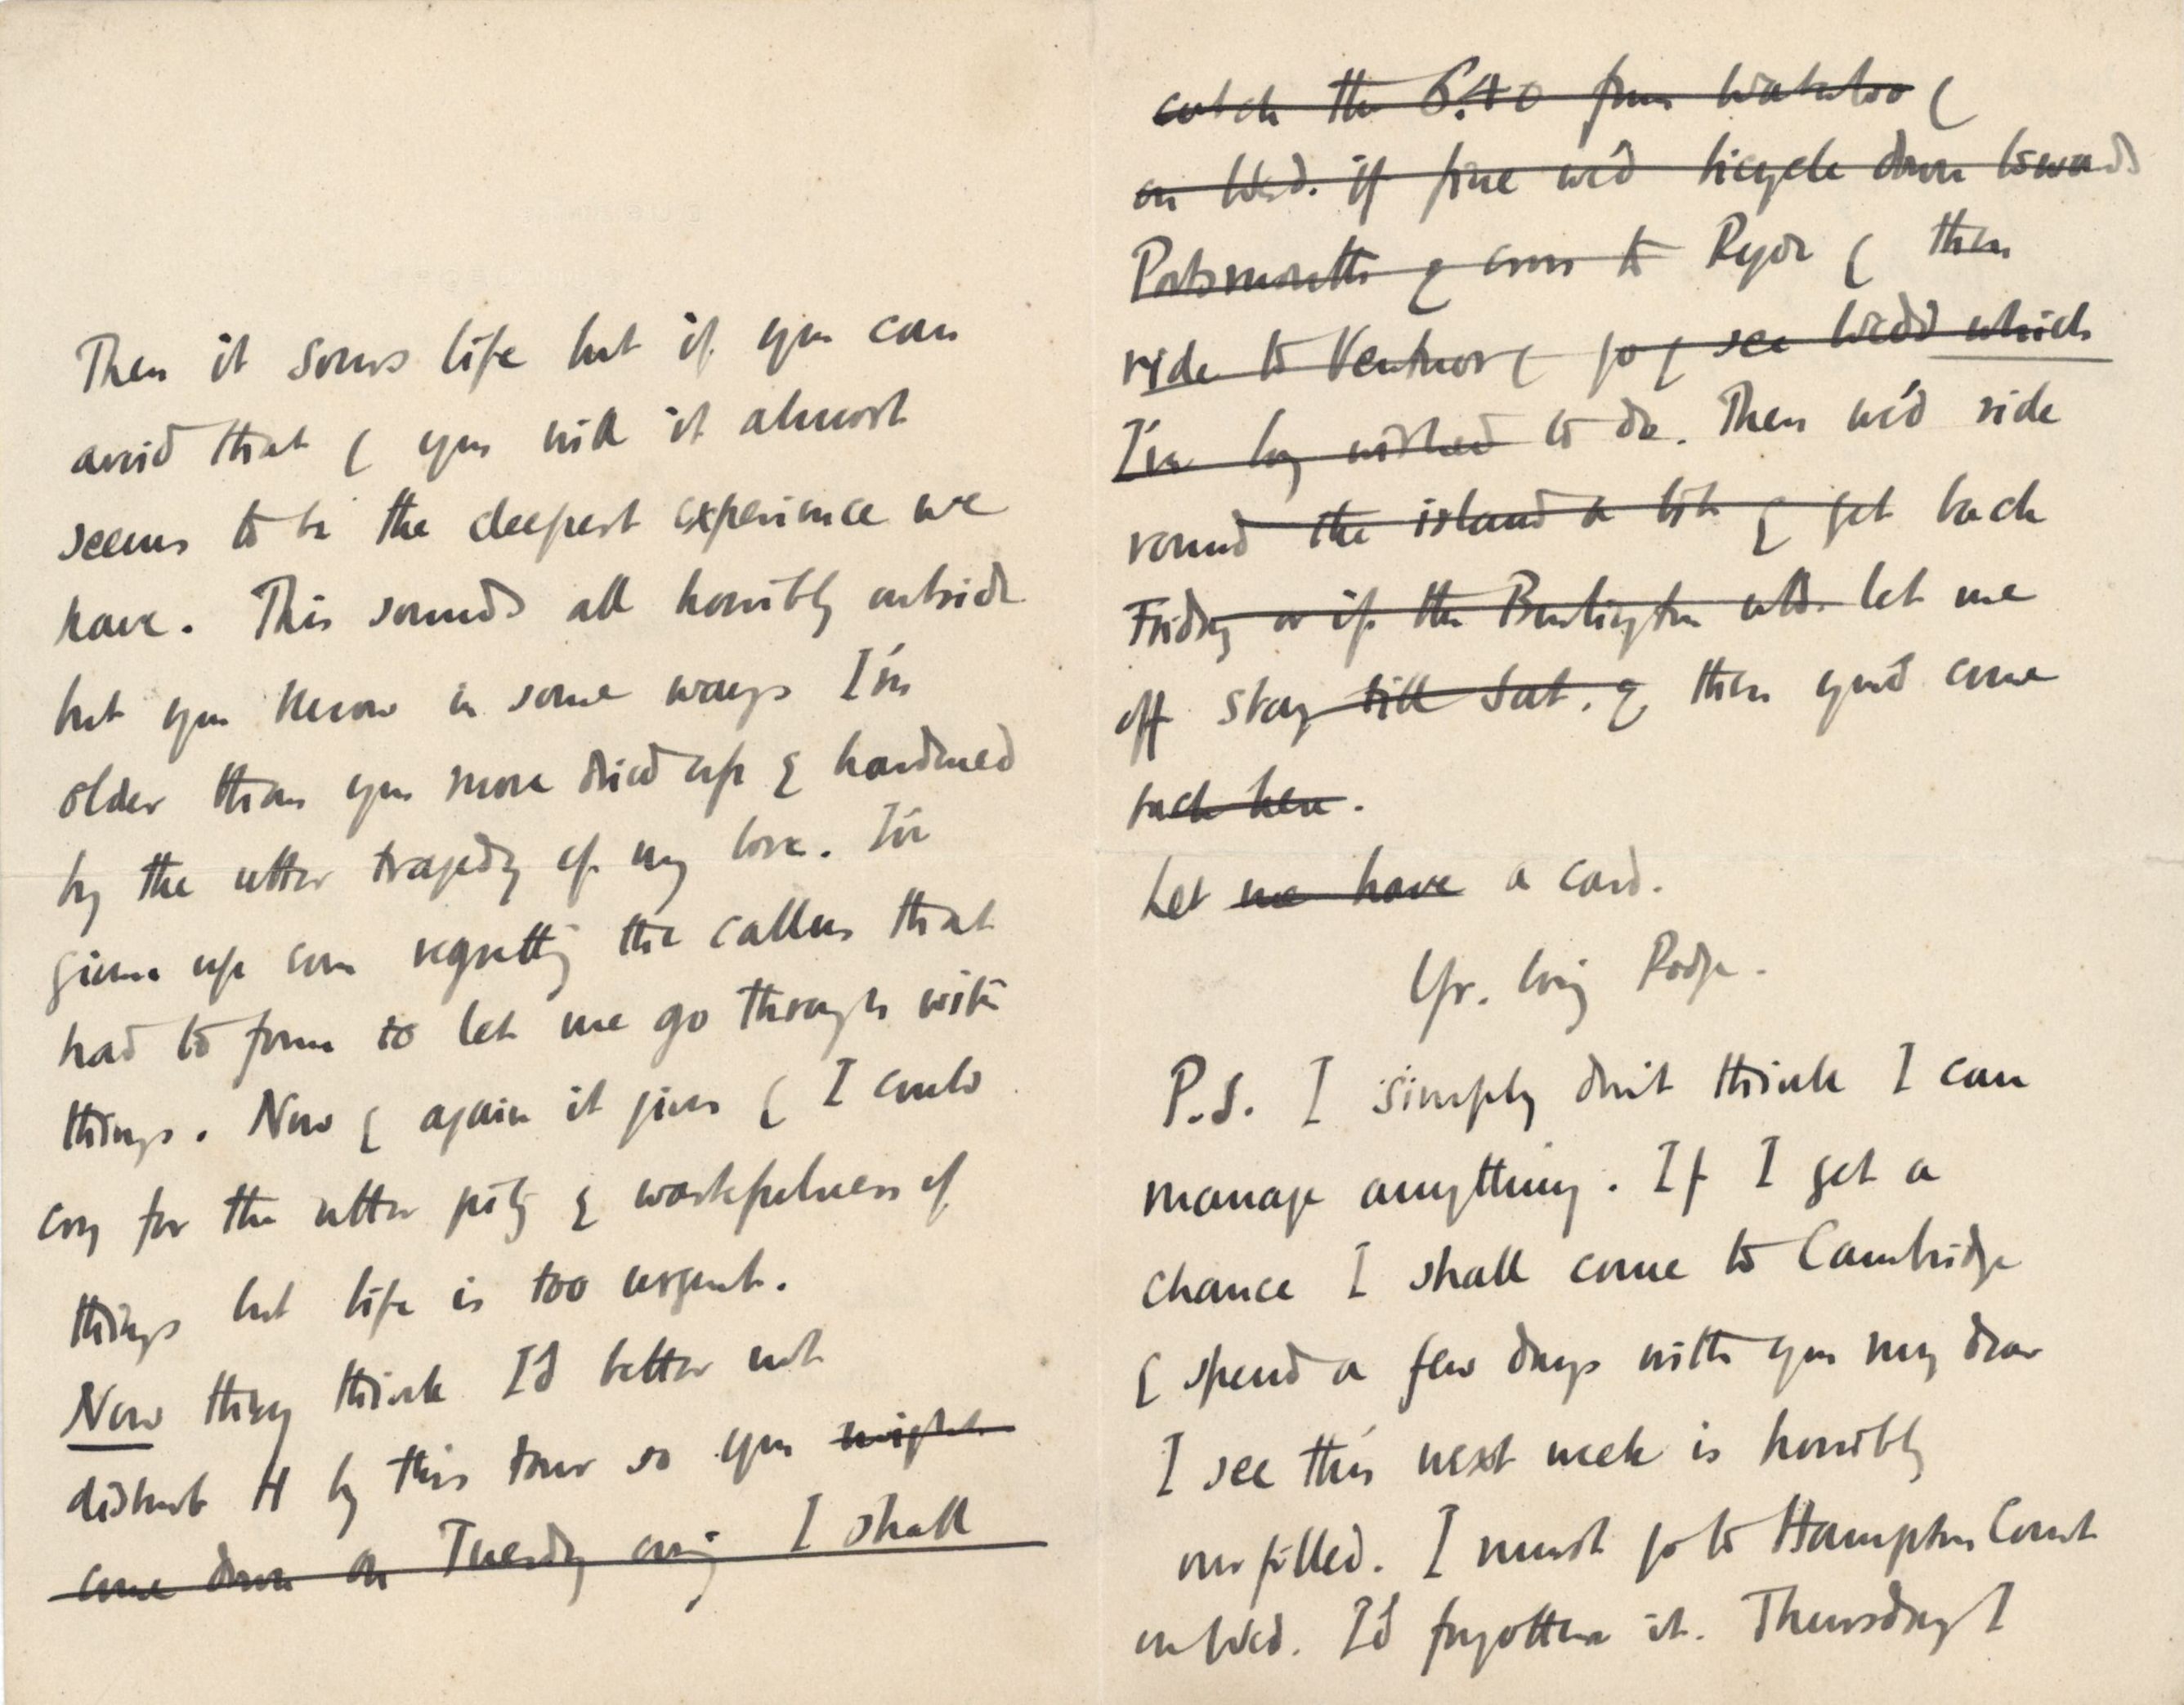 Then it sours life but if you can
avoid that & you will it almost
seems to be the deepest experience we
have. This sounds all horribly outside
but you know in some ways I'm
older than you more dried up & hardened
by the utter tragedy of my love. I've
given up even regretting the callus that
had to form to let me go through with
things. Now & again it gives & I could
cry for the utter pity & wastefulness of
things but life is too urgent.
Now they think I'd better not
disturb H by this tour so you might
come down on Tuesday evg I shall
catch the 6.40 from Waterloo &
on Wed. if fine we'd bicycle down towards
Portsmouth & cross to Ryde & then
ride to Ventnor & go & see Wedd which
I've long wished to do. Then we'd ride
round the island a bit & get back
Friday or if the Burlington wld. let me
off stay till Sat. & then you'd come
back here.
Let me have a card.
Yr. lovig Rodge.
P.S. I simply don't think I can
manage anything. If I get a
chance I shall come to Cambridge
& spend a few days with you my dear
I see this next week is horribly
over filled. I must go to Hampton Court
on Wed. I'd forgotten it. Thursday I